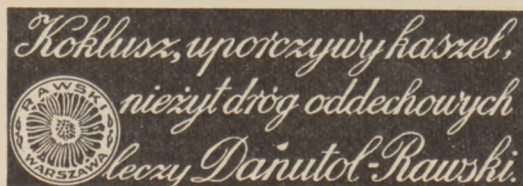 Koklusz, uporczywy kaszel,
nieżyt dróg oddechowych
leczy Dańutol-Rawski.
RAWSKI
WARSZAWA